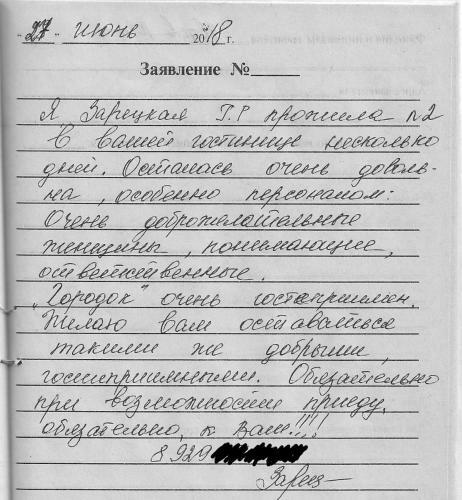 "27" июнь 2018 г.
Заявление №
Я Зарецкая Г.Р прожила п2
в вашей гостинице несколько
дней. Осталась очень доволь-
на, особенно персоналом:
Очень доброжелательные
женщины, понимающие,
ответственные.
"Городок" очень гостеприимен.
Желаю вам оставаться
такими же добрыми,
гостиприимными. Обязательно
при возможности приеду,
обязательно, к Вам!!!!
8 929
Зарец